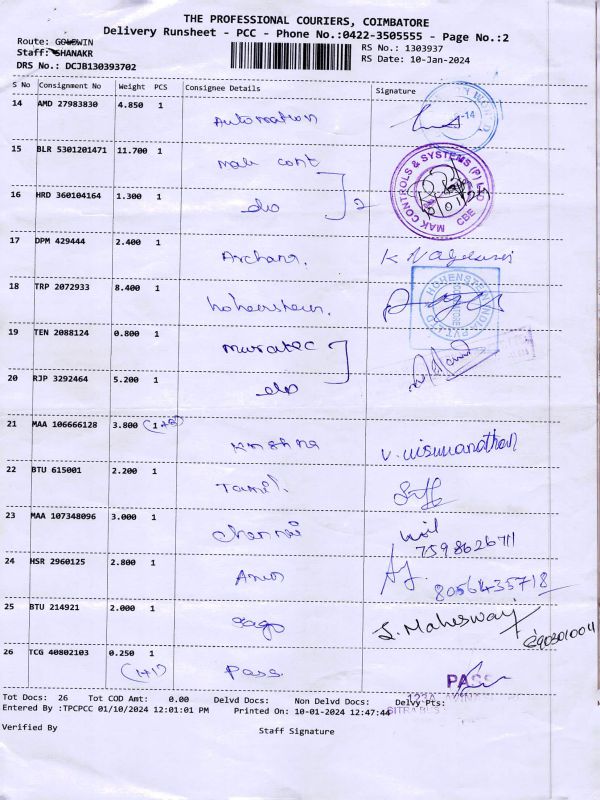 THE PROFESSIONAL COURIERS, COIMBATORE
Delivery Runsheet - PCC - Phone No.:0422-3505555 - Page No.:2
Route: GOLDWIN
Staff: SHANAKR
DRS No.: DCJB130393702
RS No.: 1303937
RS Date: 10-Jan-2024
S No Consignment No Weight PCS Consignee Details Signature
14 AMD 27983830 4.850 1 Automation
15 BLR 5301201471 11.700 1 mak cont
MAK CONTROLS & SYSTEMS (P) LTD CBE
16 HRD 360104164 1.300 1 do 2
17 DPM 429444 2.400 1 Archans.
18 TRP 2072933 8.400 1 hohenstein.
HOHENSTEIN INDIA PVT LTD
19 TEN 2088124 0.800 1 muratec
20 RJP 3292464 5.200 1 do
21 MAA 106666128 3.800 Krishna V. viswanathan
22 BTU 615001 2.200 1 Tamil.
23 MAA 107348096 3.000 1 Chennai
7598626711
24 HSR 2960125 2.800 1
8056435718
25 BTU 214921 2.000 1 Sago S. Maheswary
26 TCG 40802103 0.250 1 Pass PASS
(1+1)
Tot Docs: 26 Tot COD Amt: 0.00 Delvd Docs: Non Delvd Docs: Delvy Pts:
Entered By :TPCPCC 01/10/2024 12:01:01 PM Printed On: 10-01-2024 12:47:44
Verified By Staff Signature